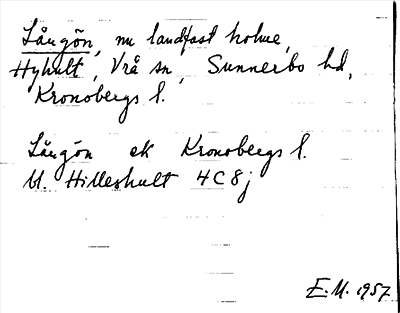 Långön, nu landfast holme,
Hyhult, Vrå sn, Sunnerbo hd,
Kronobergs l.
Långön ek Kronobergs l.
U. Hilleshult 4C8j
E.M. 1957